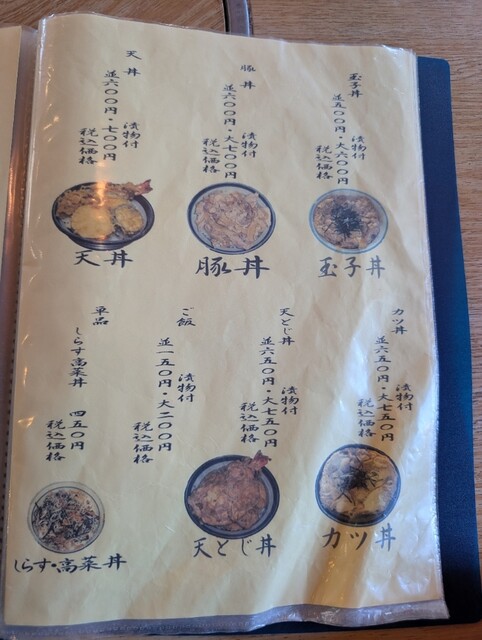 玉子丼
並五〇〇円・大六〇〇円
漬物付
税込価格
玉子丼
豚丼
並六〇〇円・大七〇〇円
漬物付
税込価格
豚丼
天丼
並六〇〇円・七〇〇円
漬物付
税込価格
天丼
カツ丼
並六五〇円・大七五〇円
漬物付
税込価格
カツ丼
天とじ丼
並六五〇円・大七五〇円
漬物付
税込価格
天とじ丼
ご飯
並一五〇円・大二〇〇円
漬物付
税込価格
単品
しらす高菜丼 四五〇円
税込価格
しらす・高菜丼